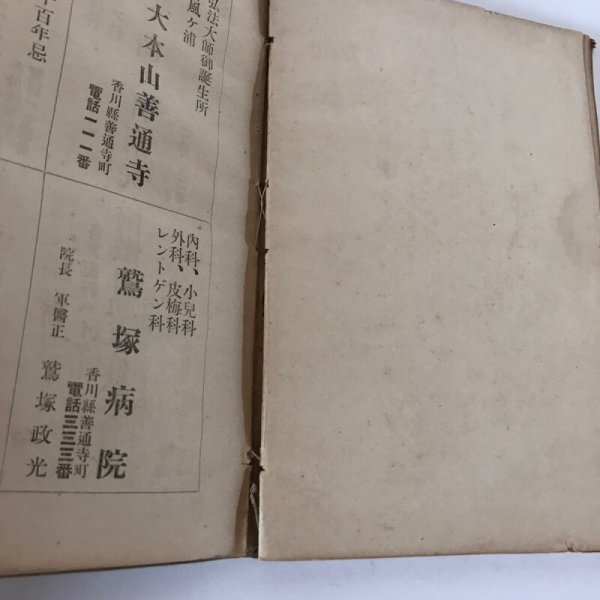 弘法大師御誕生所
風ヶ浦
大本山善通寺
香川縣善通寺町
電話一一一番
百年忌
內科、小兒科
外科、皮梅科
レントゲン科
鷲塚病院
香川縣善通寺町
電話三三三番
院長 軍醫正 鷲塚政光